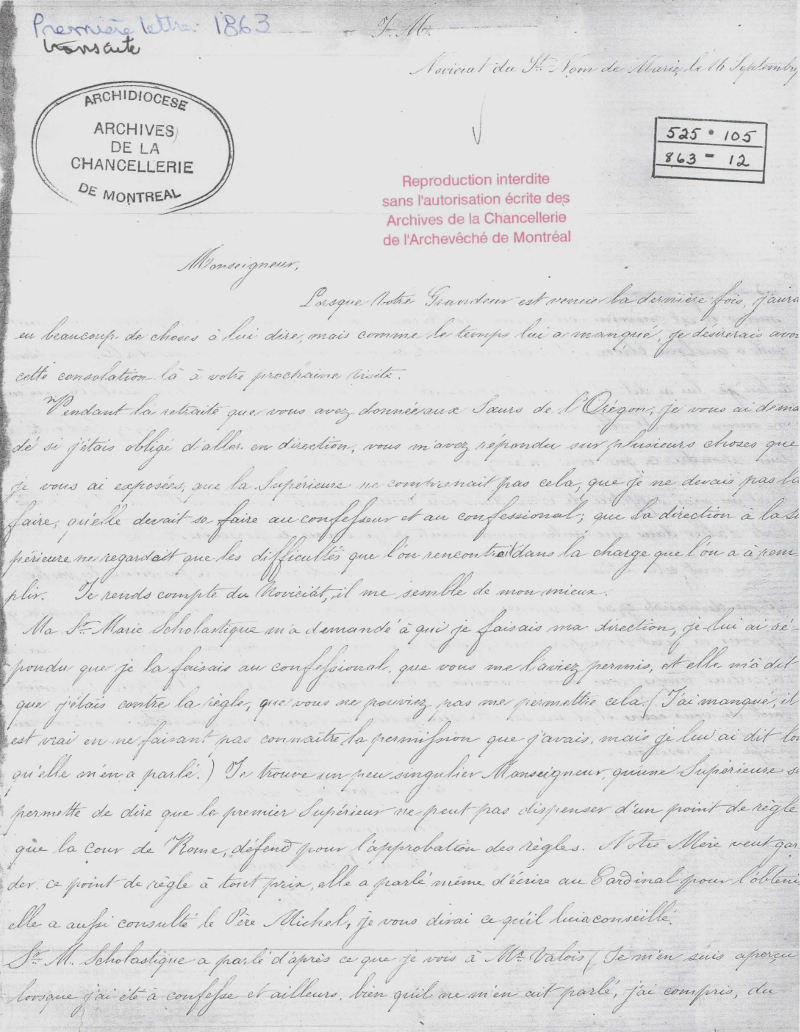 Première lettre 1863
transcrite
J. M.
Noviciat du St. Nom de Marie, le 16 Septembre
ARCHIDIOCESE
ARCHIVES
DE LA
CHANCELLERIE
DE MONTREAL
525 • 105
863 - 12
Reproduction interdite
sans l'autorisation écrite des
Archives de la Chancellerie
de l'Archevêché de Montréal
Monseigneur,
Lorsque Votre Grandeur est venue la dernière fois, j'aura
eu beaucoup de choses à lui dire, mais comme le temps lui a manqué, je désirerais avoir
cette consolation là à votre prochaine visite.
Pendant la retraite que vous avez donnée aux Sœurs de l'Orégon, je vous ai deman
dé si j'étais obligé d'aller en direction, vous m'avez répondu sur plusieurs choses que
je vous ai exposées, que la Supérieure ne comprenait pas cela, que je ne devais pas la
faire, qu'elle devait se faire au confesseur et au confessional; que la direction à la Su
périeure ne regardait que les difficultés que l'on rencontrait dans la charge que l'on a à rem
plir. Je rends compte du Noviciat, il me semble de mon mieux.
Ma Sr. Marie Scholastique m'a demandé à qui je faisais ma direction, je lui ai ré-
pondu que je la faisais au confessional, que vous me l'aviez permis, et elle m'a dit
que j'étais contre la règle, que vous ne pouviez pas me permettre cela. (J'ai manqué, il
est vrai en ne faisant pas connaître la permission que j'avais, mais je lui ai dit lors
qu'elle m'en a parlé.) Je trouve un peu singulier Monseigneur, qu'une Supérieure se
permette de dire que le premier Supérieur ne peut pas dispenser d'un point de règle
que la cour de Rome, défend pour l'approbation des règles. Notre Mère veut gar
der ce point de règle à tout prix, elle a parlé même d'écrire au Cardinal pour l'obtenir
elle a aussi consulté le Père Michel, je vous dirai ce qu'il lui a conseillé.
Sr. M. Scholastique a parlé d'après ce que je vois à Mr. Valois (Je m'en suis aperçu
lorsque j'ai été à confesse et ailleurs, bien qu'il ne m'en ait parlé, j'ai compris, du